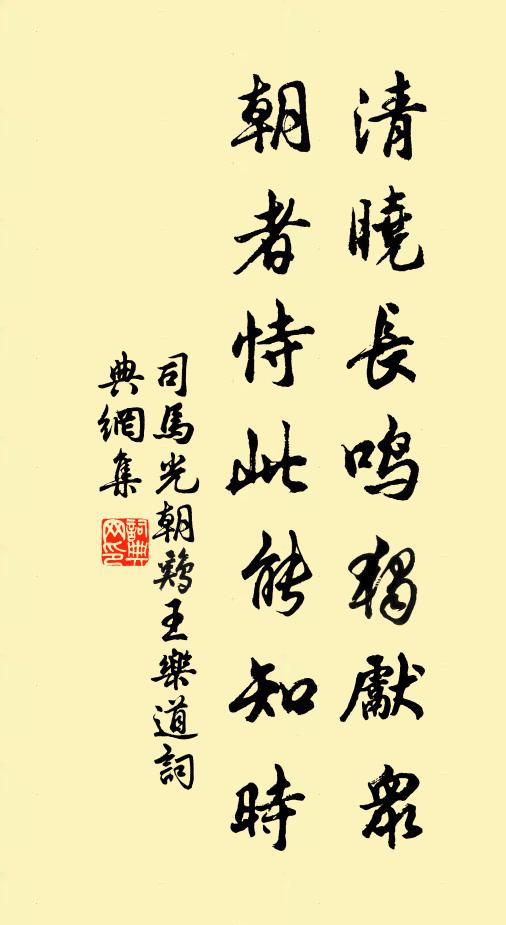 清曉長鳴獨獻眾
朝者恃此能知時
司馬光朝鷄王樂道詞
典網集
詞典網印